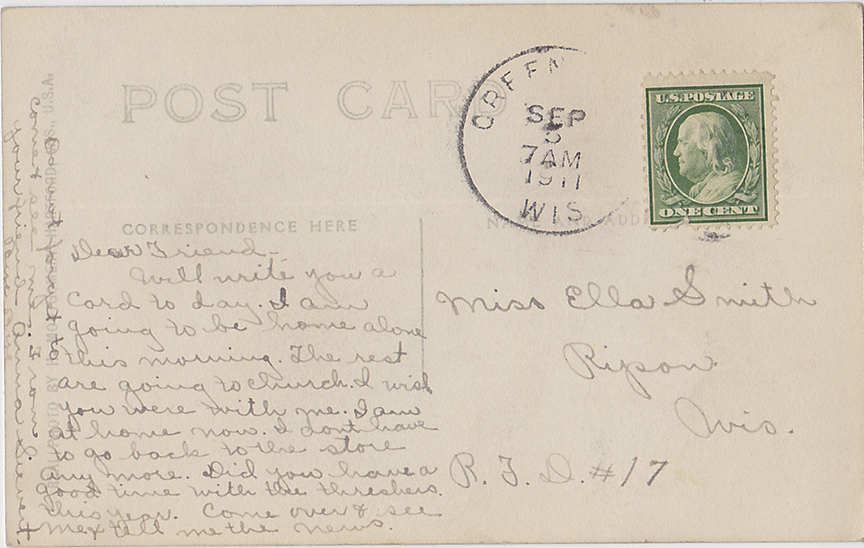 POST CARD
GREEN
SEP
5
7 AM
1911
WIS
U.S. POSTAGE
ONE CENT
CORRESPONDENCE HERE
NAME AND ADD
Dear Friend -
Will write you a
card to day. I am
going to be home alone
this morning. The rest
are going to church. I wish
you were with me. I am
at home now. I dont have
to go back to the store
any more. Did you have a
good time with the threshers
this year. Come over & see
me & tell me the news.
Do not forget to
come & see me. From
your friend Anna Sievert
Miss Ella Smith
Ripon
Wis.
R. F. D. #17
PHOTO BY
U.S.A.